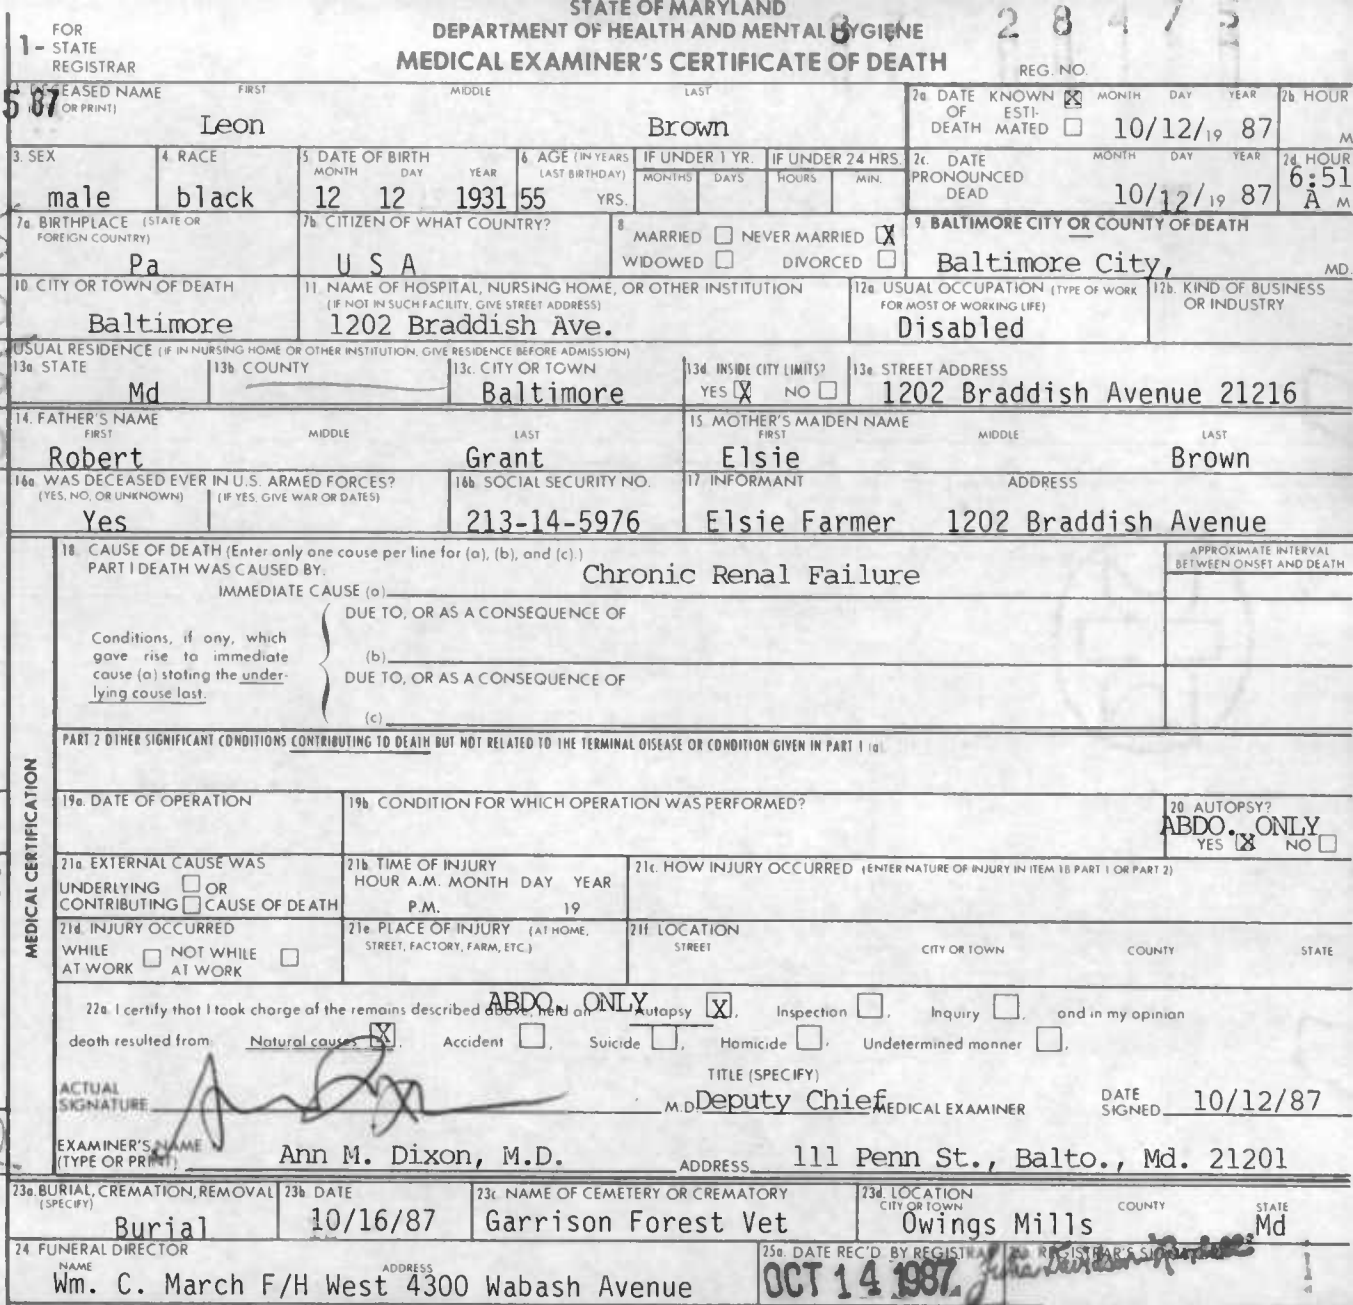 STATE OF MARYLAND
DEPARTMENT OF HEALTH AND MENTAL HYGIENE
MEDICAL EXAMINER'S CERTIFICATE OF DEATH
1 - FOR STATE REGISTRAR
8 2 8 4 7 5
REG. NO.
5 87
DECEASED NAME (TYPE OR PRINT) FIRST MIDDLE LAST
Leon Brown
2a. DATE OF DEATH KNOWN X ESTIMATED MONTH DAY YEAR
10/12/19 87
2b. HOUR M
3. SEX male
4. RACE black
5. DATE OF BIRTH MONTH DAY YEAR
12 12 1931
6. AGE (IN YEARS LAST BIRTHDAY) 55 YRS.
IF UNDER 1 YR. MONTHS DAYS
IF UNDER 24 HRS. HOURS MIN.
2c. DATE PRONOUNCED DEAD MONTH DAY YEAR
10/12/19 87
2d. HOUR 6:51 A M
7a. BIRTHPLACE (STATE OR FOREIGN COUNTRY)
Pa
7b. CITIZEN OF WHAT COUNTRY?
U S A
8. MARRIED NEVER MARRIED X
WIDOWED DIVORCED
9. BALTIMORE CITY OR COUNTY OF DEATH
Baltimore City, MD.
10. CITY OR TOWN OF DEATH
Baltimore
11. NAME OF HOSPITAL, NURSING HOME, OR OTHER INSTITUTION
(IF NOT IN SUCH FACILITY, GIVE STREET ADDRESS)
1202 Braddish Ave.
12a. USUAL OCCUPATION (TYPE OF WORK FOR MOST OF WORKING LIFE)
Disabled
12b. KIND OF BUSINESS OR INDUSTRY
USUAL RESIDENCE (IF IN NURSING HOME OR OTHER INSTITUTION, GIVE RESIDENCE BEFORE ADMISSION)
13a. STATE Md
13b. COUNTY
13c. CITY OR TOWN Baltimore
13d. INSIDE CITY LIMITS? YES X NO
13e. STREET ADDRESS
1202 Braddish Avenue 21216
14. FATHER'S NAME FIRST MIDDLE LAST
Robert Grant
15. MOTHER'S MAIDEN NAME FIRST MIDDLE LAST
Elsie Brown
16a. WAS DECEASED EVER IN U.S. ARMED FORCES?
(YES, NO, OR UNKNOWN) (IF YES, GIVE WAR OR DATES)
Yes
16b. SOCIAL SECURITY NO.
213-14-5976
17. INFORMANT ADDRESS
Elsie Farmer 1202 Braddish Avenue
MEDICAL CERTIFICATION
18. CAUSE OF DEATH (Enter only one cause per line for (a), (b), and (c).)
PART I DEATH WAS CAUSED BY:
IMMEDIATE CAUSE (a) Chronic Renal Failure
APPROXIMATE INTERVAL BETWEEN ONSET AND DEATH
DUE TO, OR AS A CONSEQUENCE OF
Conditions, if any, which gave rise to immediate cause (a) stating the underlying cause last.
(b)
DUE TO, OR AS A CONSEQUENCE OF
(c)
PART 2 OTHER SIGNIFICANT CONDITIONS CONTRIBUTING TO DEATH BUT NOT RELATED TO THE TERMINAL DISEASE OR CONDITION GIVEN IN PART 1 (a)
19a. DATE OF OPERATION
19b. CONDITION FOR WHICH OPERATION WAS PERFORMED?
20. AUTOPSY?
ABDO. ONLY
YES X NO
21a. EXTERNAL CAUSE WAS
UNDERLYING OR
CONTRIBUTING CAUSE OF DEATH
21b. TIME OF INJURY
HOUR A.M. MONTH DAY YEAR
P.M. 19
21c. HOW INJURY OCCURRED (ENTER NATURE OF INJURY IN ITEM 18 PART 1 OR PART 2)
21d. INJURY OCCURRED
WHILE AT WORK NOT WHILE AT WORK
21e. PLACE OF INJURY (AT HOME, STREET, FACTORY, FARM, ETC.)
21f. LOCATION STREET CITY OR TOWN COUNTY STATE
ABDO. ONLY
22a. I certify that I took charge of the remains described above, held an Autopsy X, Inspection, Inquiry, and in my opinion
death resulted from Natural causes X, Accident, Suicide, Homicide, Undetermined manner.
TITLE (SPECIFY)
ACTUAL SIGNATURE M.D. Deputy Chief MEDICAL EXAMINER DATE SIGNED 10/12/87
EXAMINER'S NAME (TYPE OR PRINT) Ann M. Dixon, M.D. ADDRESS 111 Penn St., Balto., Md. 21201
23a. BURIAL, CREMATION, REMOVAL (SPECIFY)
Burial
23b. DATE
10/16/87
23c. NAME OF CEMETERY OR CREMATORY
Garrison Forest Vet
23d. LOCATION CITY OR TOWN COUNTY STATE
Owings Mills Md
24. FUNERAL DIRECTOR
NAME ADDRESS
Wm. C. March F/H West 4300 Wabash Avenue
25a. DATE REC'D BY REGISTRAR
OCT 14 1987
REGISTRAR'S